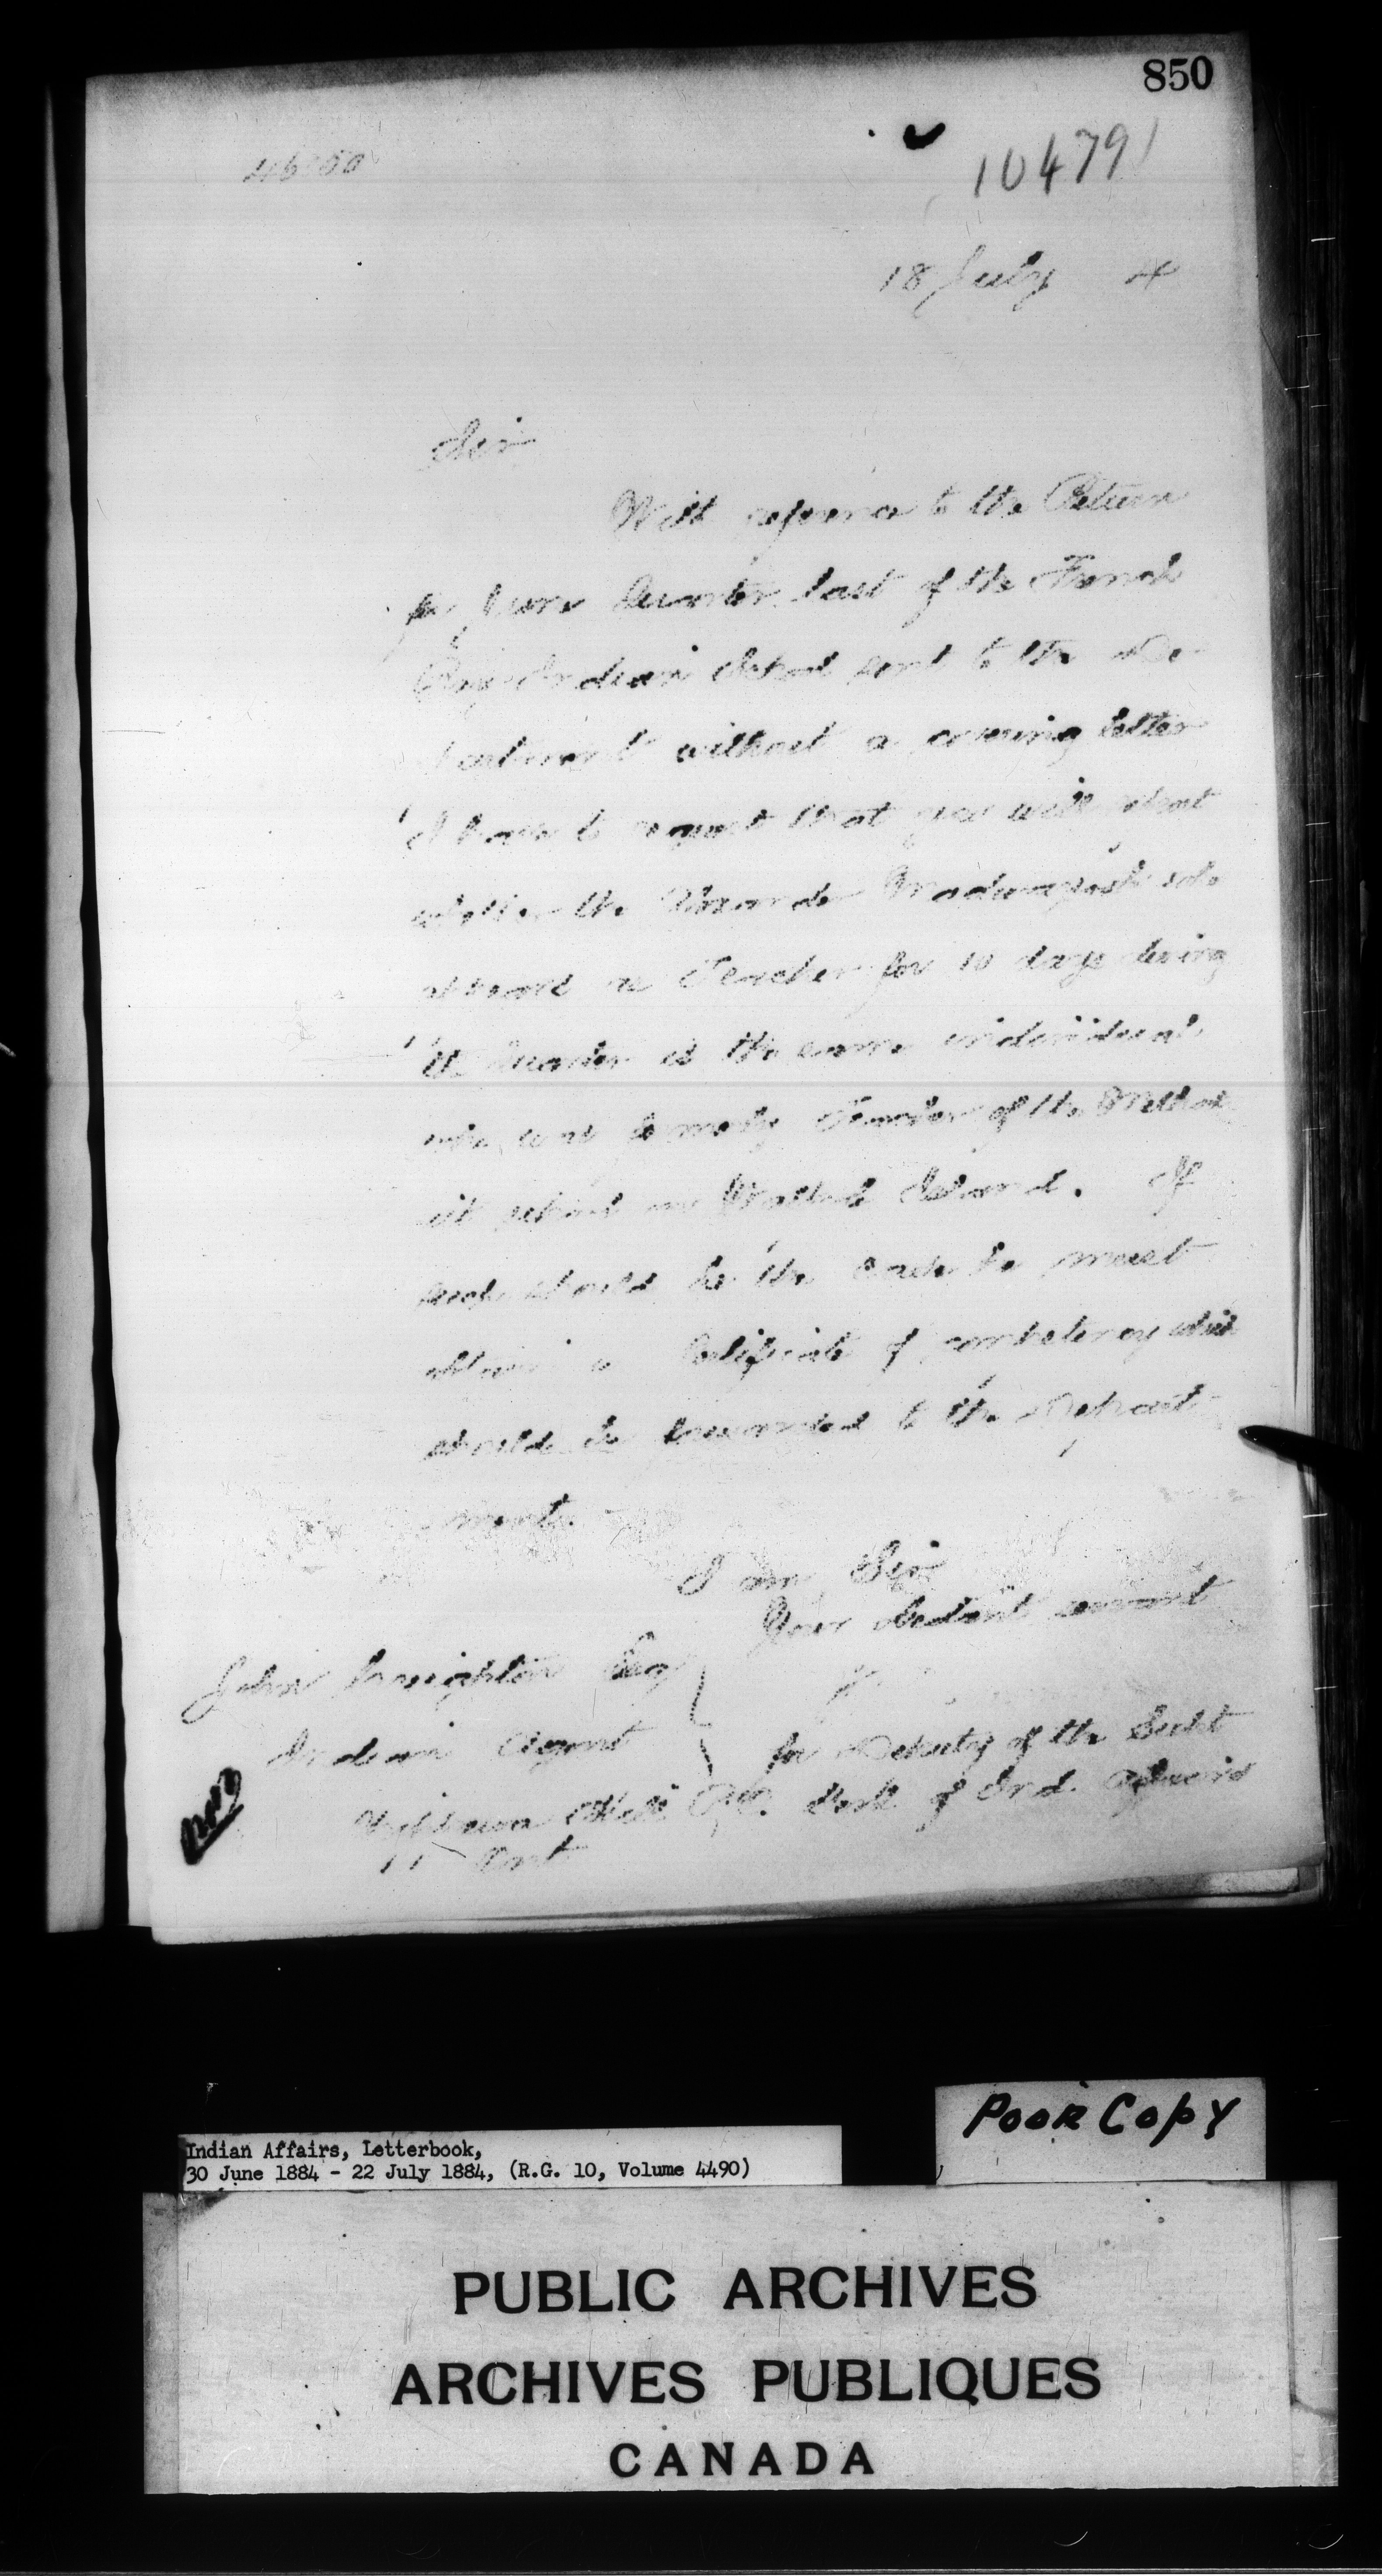 850
10479
18 July 4
Sir
With reference to the Return
for June Quarter last of the French
Bay Indian School sent to the De-
partment without a covering letter
I have to request that you will state
whether the Madwayosh who
as Teacher for 10 days during
the Quarter is the same individual
who was formerly Teacher of the
school on Island. If
such should be the case he must
obtain a Certificate of competency which
should be forwarded to the Depart-
ment.
I am, Sir
Your obedient servant
John Creighton Esq
Indian Agent
for Deputy of the Supt
Chippewa Hill P.O. Genl. of Ind. Affairs
Ont
Poor Copy
Indian Affairs, Letterbook,
30 June 1884 - 22 July 1884, (R.G. 10, Volume 4490)
PUBLIC ARCHIVES
ARCHIVES PUBLIQUES
CANADA